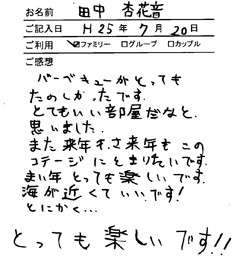 お名前 田中 杏花音
ご記入日 H25年7月20日
ご利用 ☑ファミリー □グループ □カップル
ご感想
バーベキューがとっても
たのしかったです。
とてもいい部屋だなと、
思いました。
また来年もさ来年もこの
コテージにとまりたいです。
まい年とっても楽しいです。
海が近くていいです!
とにかく...
とっても楽しいです!!